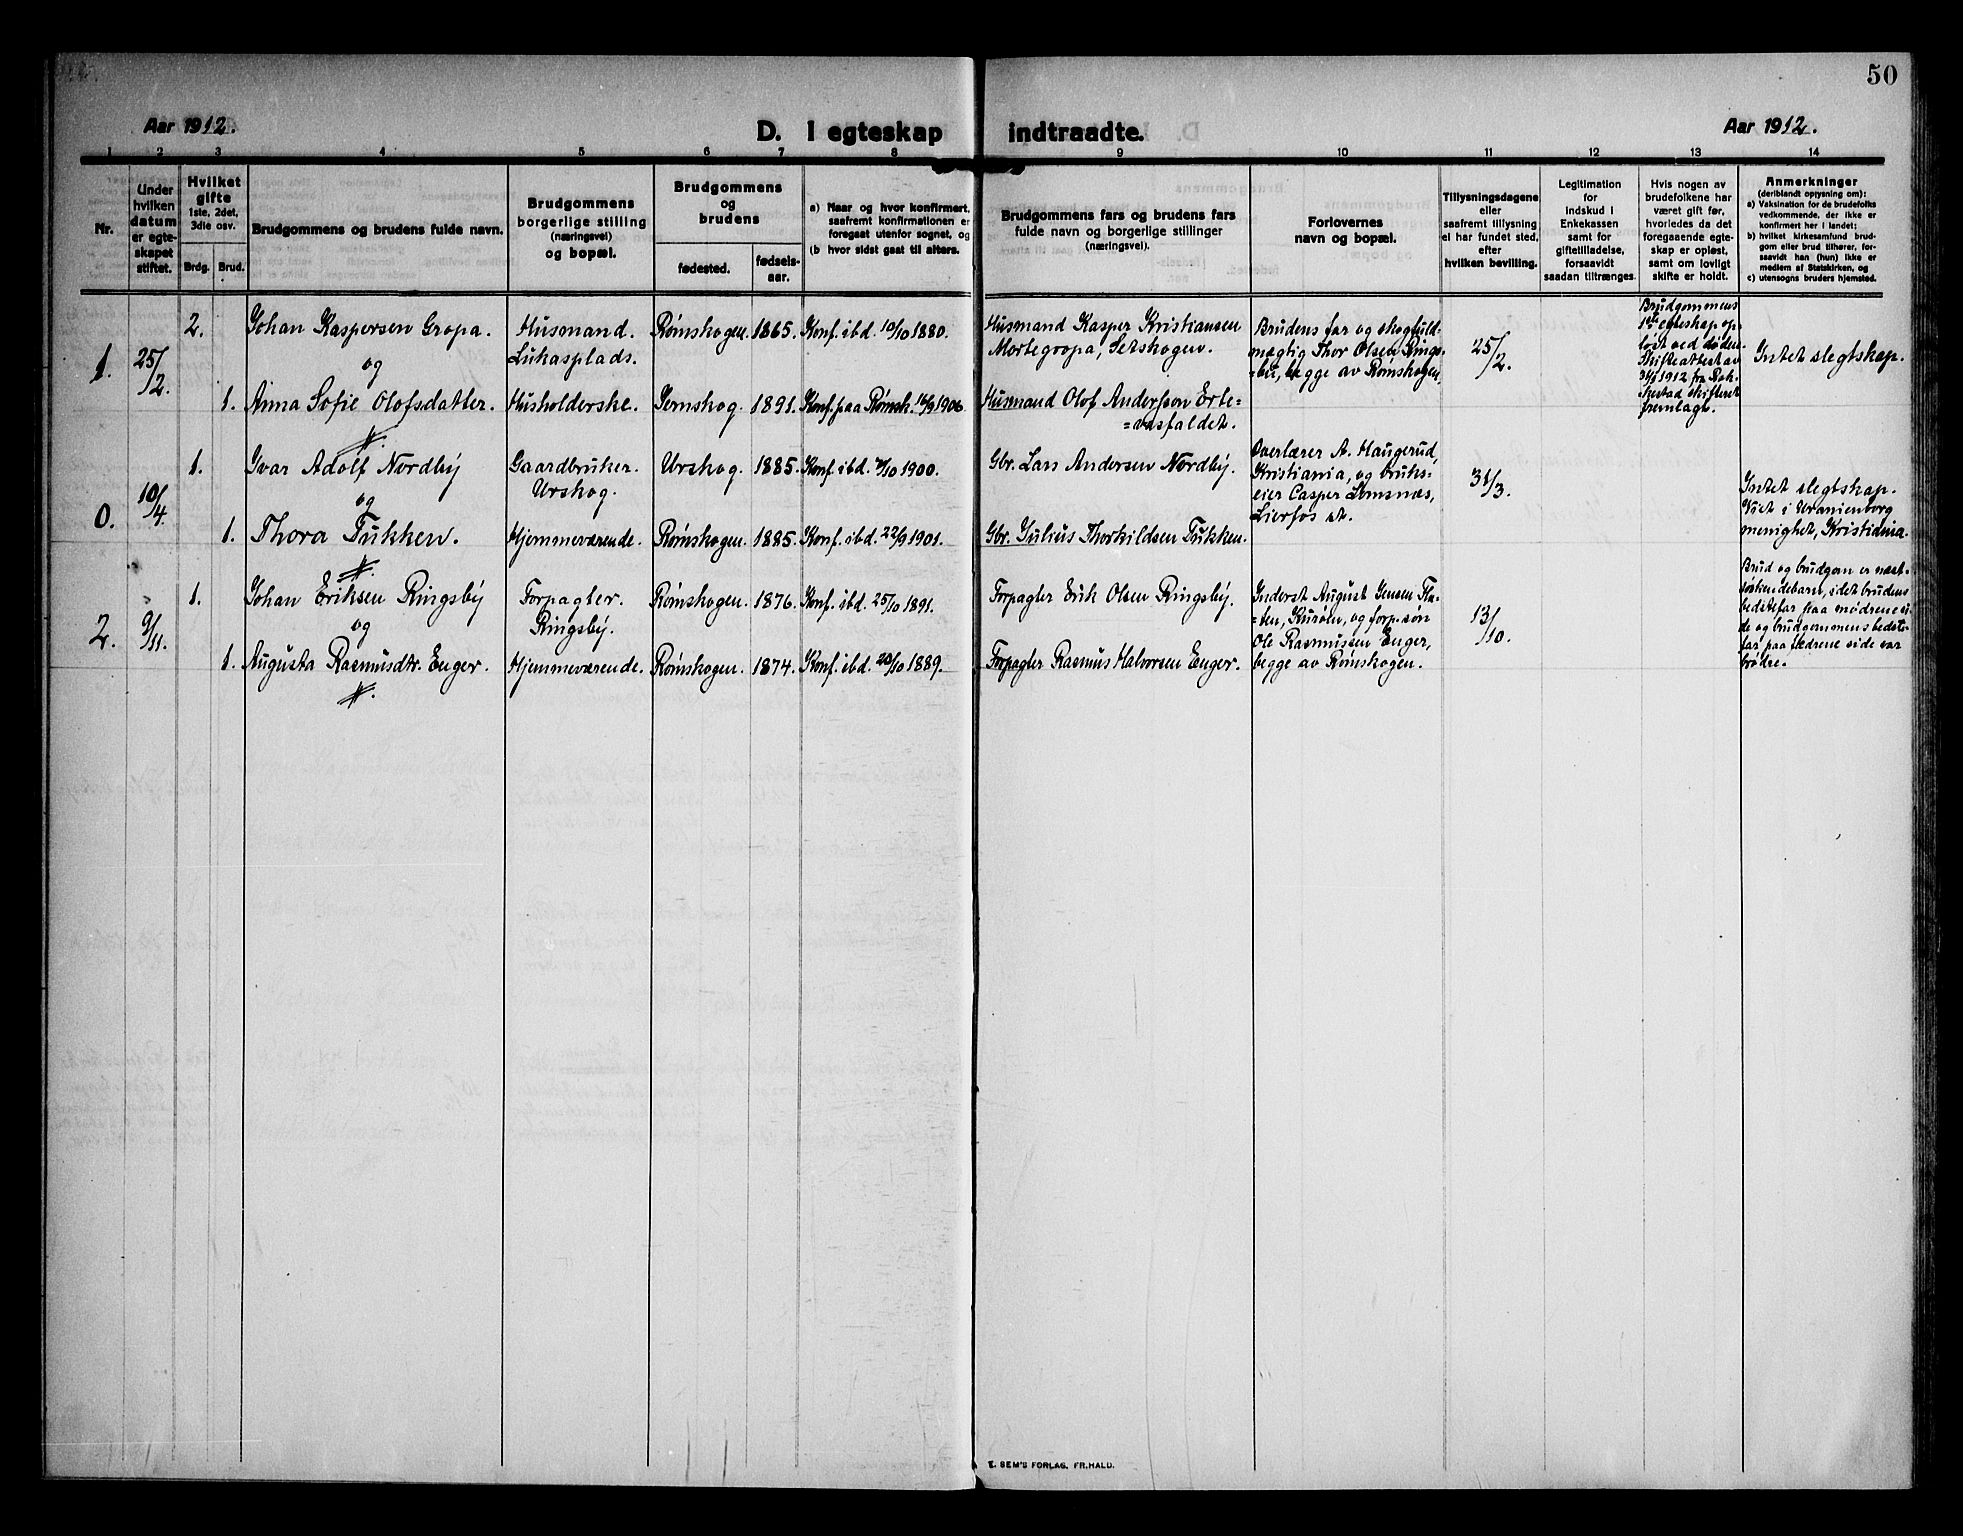 50
Aar 1912.
D. I egteskap
indtraadte.
Aar 1912.
1 2 3 4 5 6 7 8 9 10 11 12 13 14
Nr.
Under
hvilken
datum
er egte-
skapet
stiftet.
Hvilket
gifte
1ste, 2det,
3die osv.
Brdg. Brud.
Brudgommens og brudens fulde navn.
Brudgommens
borgerlige stilling
(næringsvei)
og bopæl.
Brudgommens
og
brudens
fødested.
fødsels-
aar.
a) Naar og hvor konfirmert,
saafremt konfirmationen er
foregaat utenfor sognet, og
(b hvor sidst gaat til alters.
Brudgommens fars og brudens fars
fulde navn og borgerlige stillinger
(næringsvei).
Forlovernes
navn og bopæl.
Tillysningsdagene
eller
saafremt tillysning
ei har fundet sted,
efter
hvilken bevilling.
Legitimation
for
indskud i
Enkekassen
samt for
giftetilladelse,
forsaavidt
saadan tiltrænges.
Hvis nogen av
brudefolkene har
været gift før,
hvorledes da det
foregaaende egte-
skap er opløst,
samt om lovligt
skifte er holdt.
Anmerkninger
(deriblandt opysning om):
a) Vaksination for de brudefolks
vedkommende, der ikke er
konfirmert her i landet;
b) hvilket kirkesamfund brud-
gom eller brud tilhører, for-
saavidt han (hun) ikke er
medlem af Statskirken, og
c) utensogns bruders hjemsted.
1.
25/2
2.
Johan Kaspersen Gropa.
og
1.
Anna Sofie Olofsdatter.
Husmand.
Lukasplads.
Husholderske.
Rømskogen.
Jernskog.
1865.
1891.
Konf. ibd. 10/10 1880.
Konf. paa Rømsk. 16/9 1906.
Husmand Kasper Kristiansen
Mortegropa, Setskogen.
Husmand Olof Andersson Erte-
=vasfaldet.
Brudens far og skogfuld-
mægtig Thor Olsen Rings-
=by, begge av Rømskogen.
25/2.
Brudgommens
1ste egteskap op-
løst ved døden
Skifteattest av
1912 fra Rak-
kestad skifteret
fremlagt.
Intet slegtskap.
0.
10/4.
1.
Ivar Adolf Nordby
og
1.
Thora Tukken.
Gaardbruker.
Urskog.
Hjemmeværende.
Urskog.
Rømskogen.
1885.
1885.
Konf. ibd. 7/10 1900.
Konf. ibd. 22/9 1901.
Gbr. Lars Andersen Nordby.
Gbr. Julius Thorkildsen Tukken.
Overlærer A. Haugerud,
Kristiania, og bruks-
eier Casper Lomsnæs,
Lierfos st.
31/3.
Intet slegtskap.
Viet i Uranienborg
menighet, Kristiania.
2.
9/11.
1.
Johan Eriksen Ringsby
og
1.
Augusta Rasmusdtr. Enger.
Forpagter.
Ringsby.
Hjemmeværende.
Rømskogen.
Rømskogen.
1876.
1874.
Konf. ibd. 25/10 1891.
Konf. ibd. 20/10 1889.
Forpagter Erik Olsen Ringsby.
Forpagter Rasmus Halvorsen Enger.
Inderst August Jensen Fla-
=ten, Kurøen, og forp. søn
Ole Rasmussen Enger,
begge av Rømskogen.
13/10.
Brud og brudgom er næst-
søskendebarn, idet brudens
bedstefar paa mødrene si-
de og brudgommens bedste-
far paa fædrene side var
brødre.
E. SEM'S FORLAG, FR.HALD.